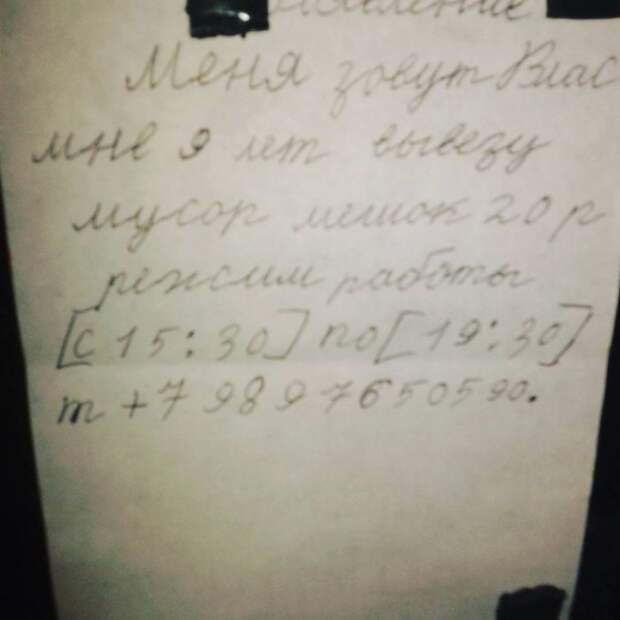 Объявление
Меня зовут Влас
мне 9 лет вывезу
мусор мешок 20 р
режим работы
[с 15:30] по [19:30]
т +7 9897650590.